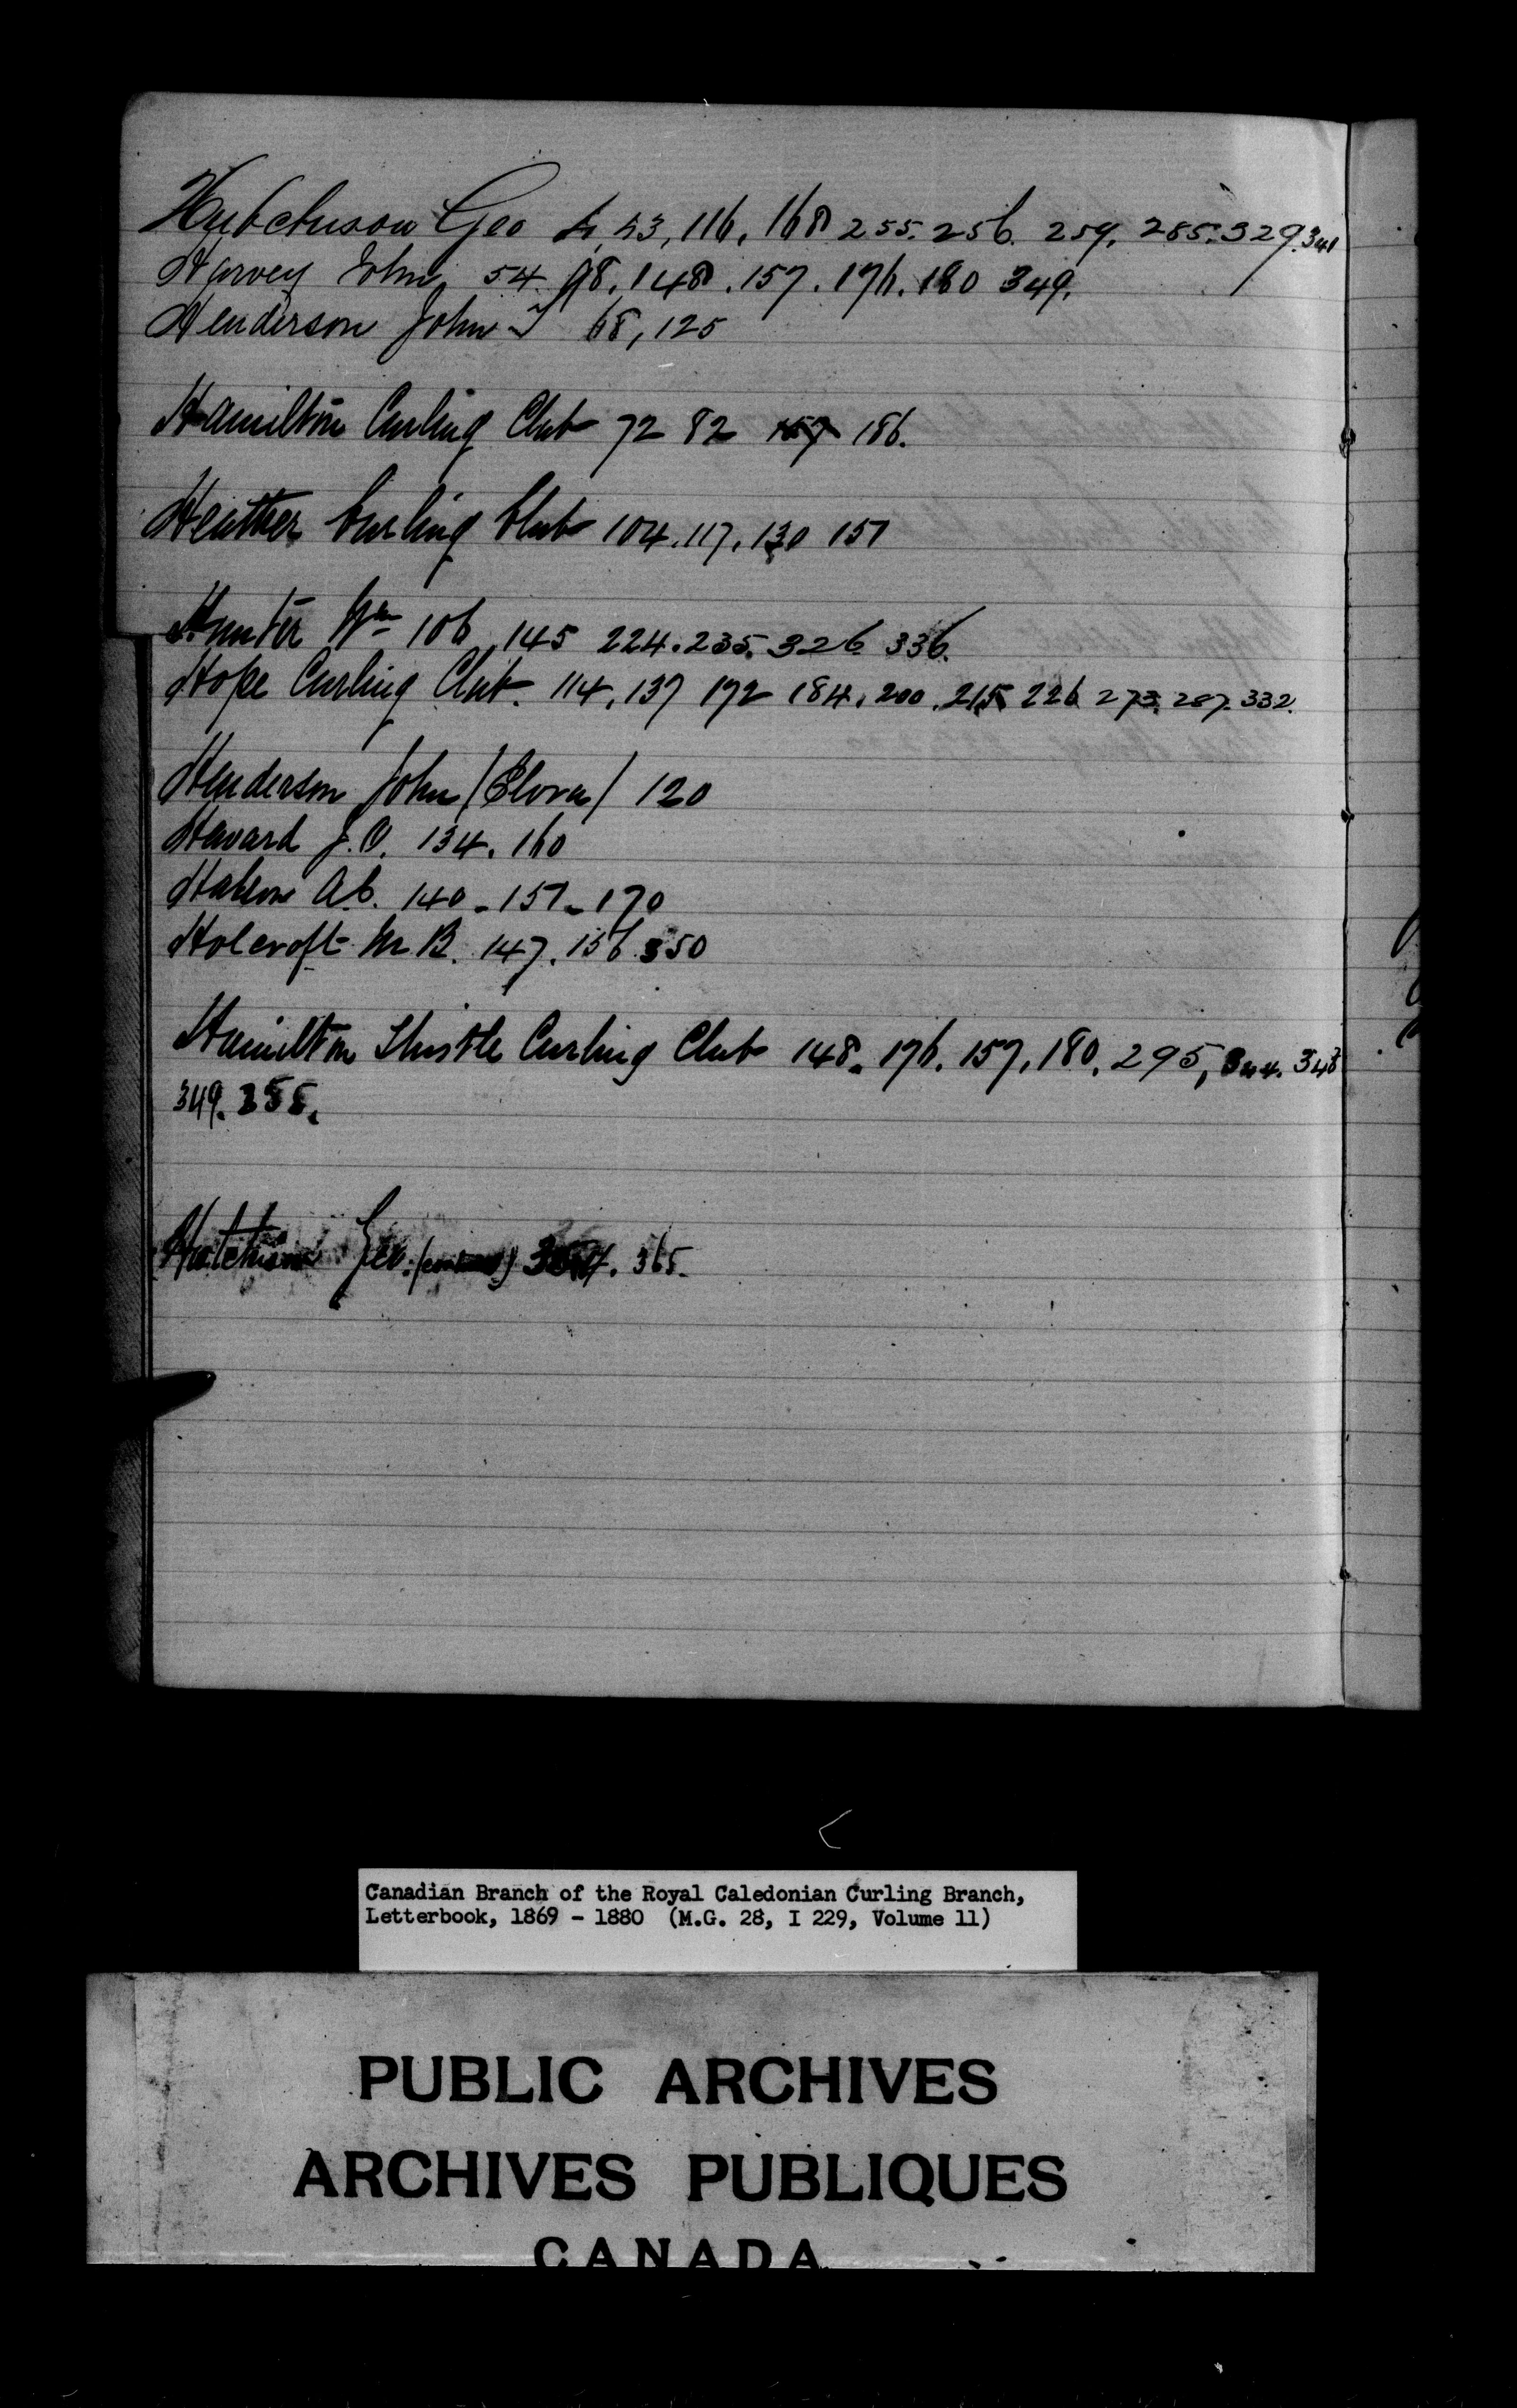 Hutchison Geo 4, 53, 116, 168 255. 256. 259. 285. 329. 341
Harvey John 54 98. 148. 157. 176. 180 349.
Henderson John T 68, 125
Hamilton Curling Club 72 82 157 186.
Heather Curling Club 104. 117. 130 151
Hunter Wm 106, 145 224. 235. 326 336.
Hope Curling Club. 114, 137 172 184. 200. 215 226 273. 287. 332.
Henderson John (Elora) 120
Havard J.V. 134. 160
A.C. 140 - 151 - 170
Holcroft M B. 147. 156. 350
Hamilton Thistle Curling Club 148. 176. 157. 180. 295, 344. 348
349. 355.
Hutchison Geo. 354. 365.
Canadian Branch of the Royal Caledonian Curling Branch,
Letterbook, 1869 - 1880 (M.G. 28, I 229, Volume 11)
PUBLIC ARCHIVES
ARCHIVES PUBLIQUES
CANADA